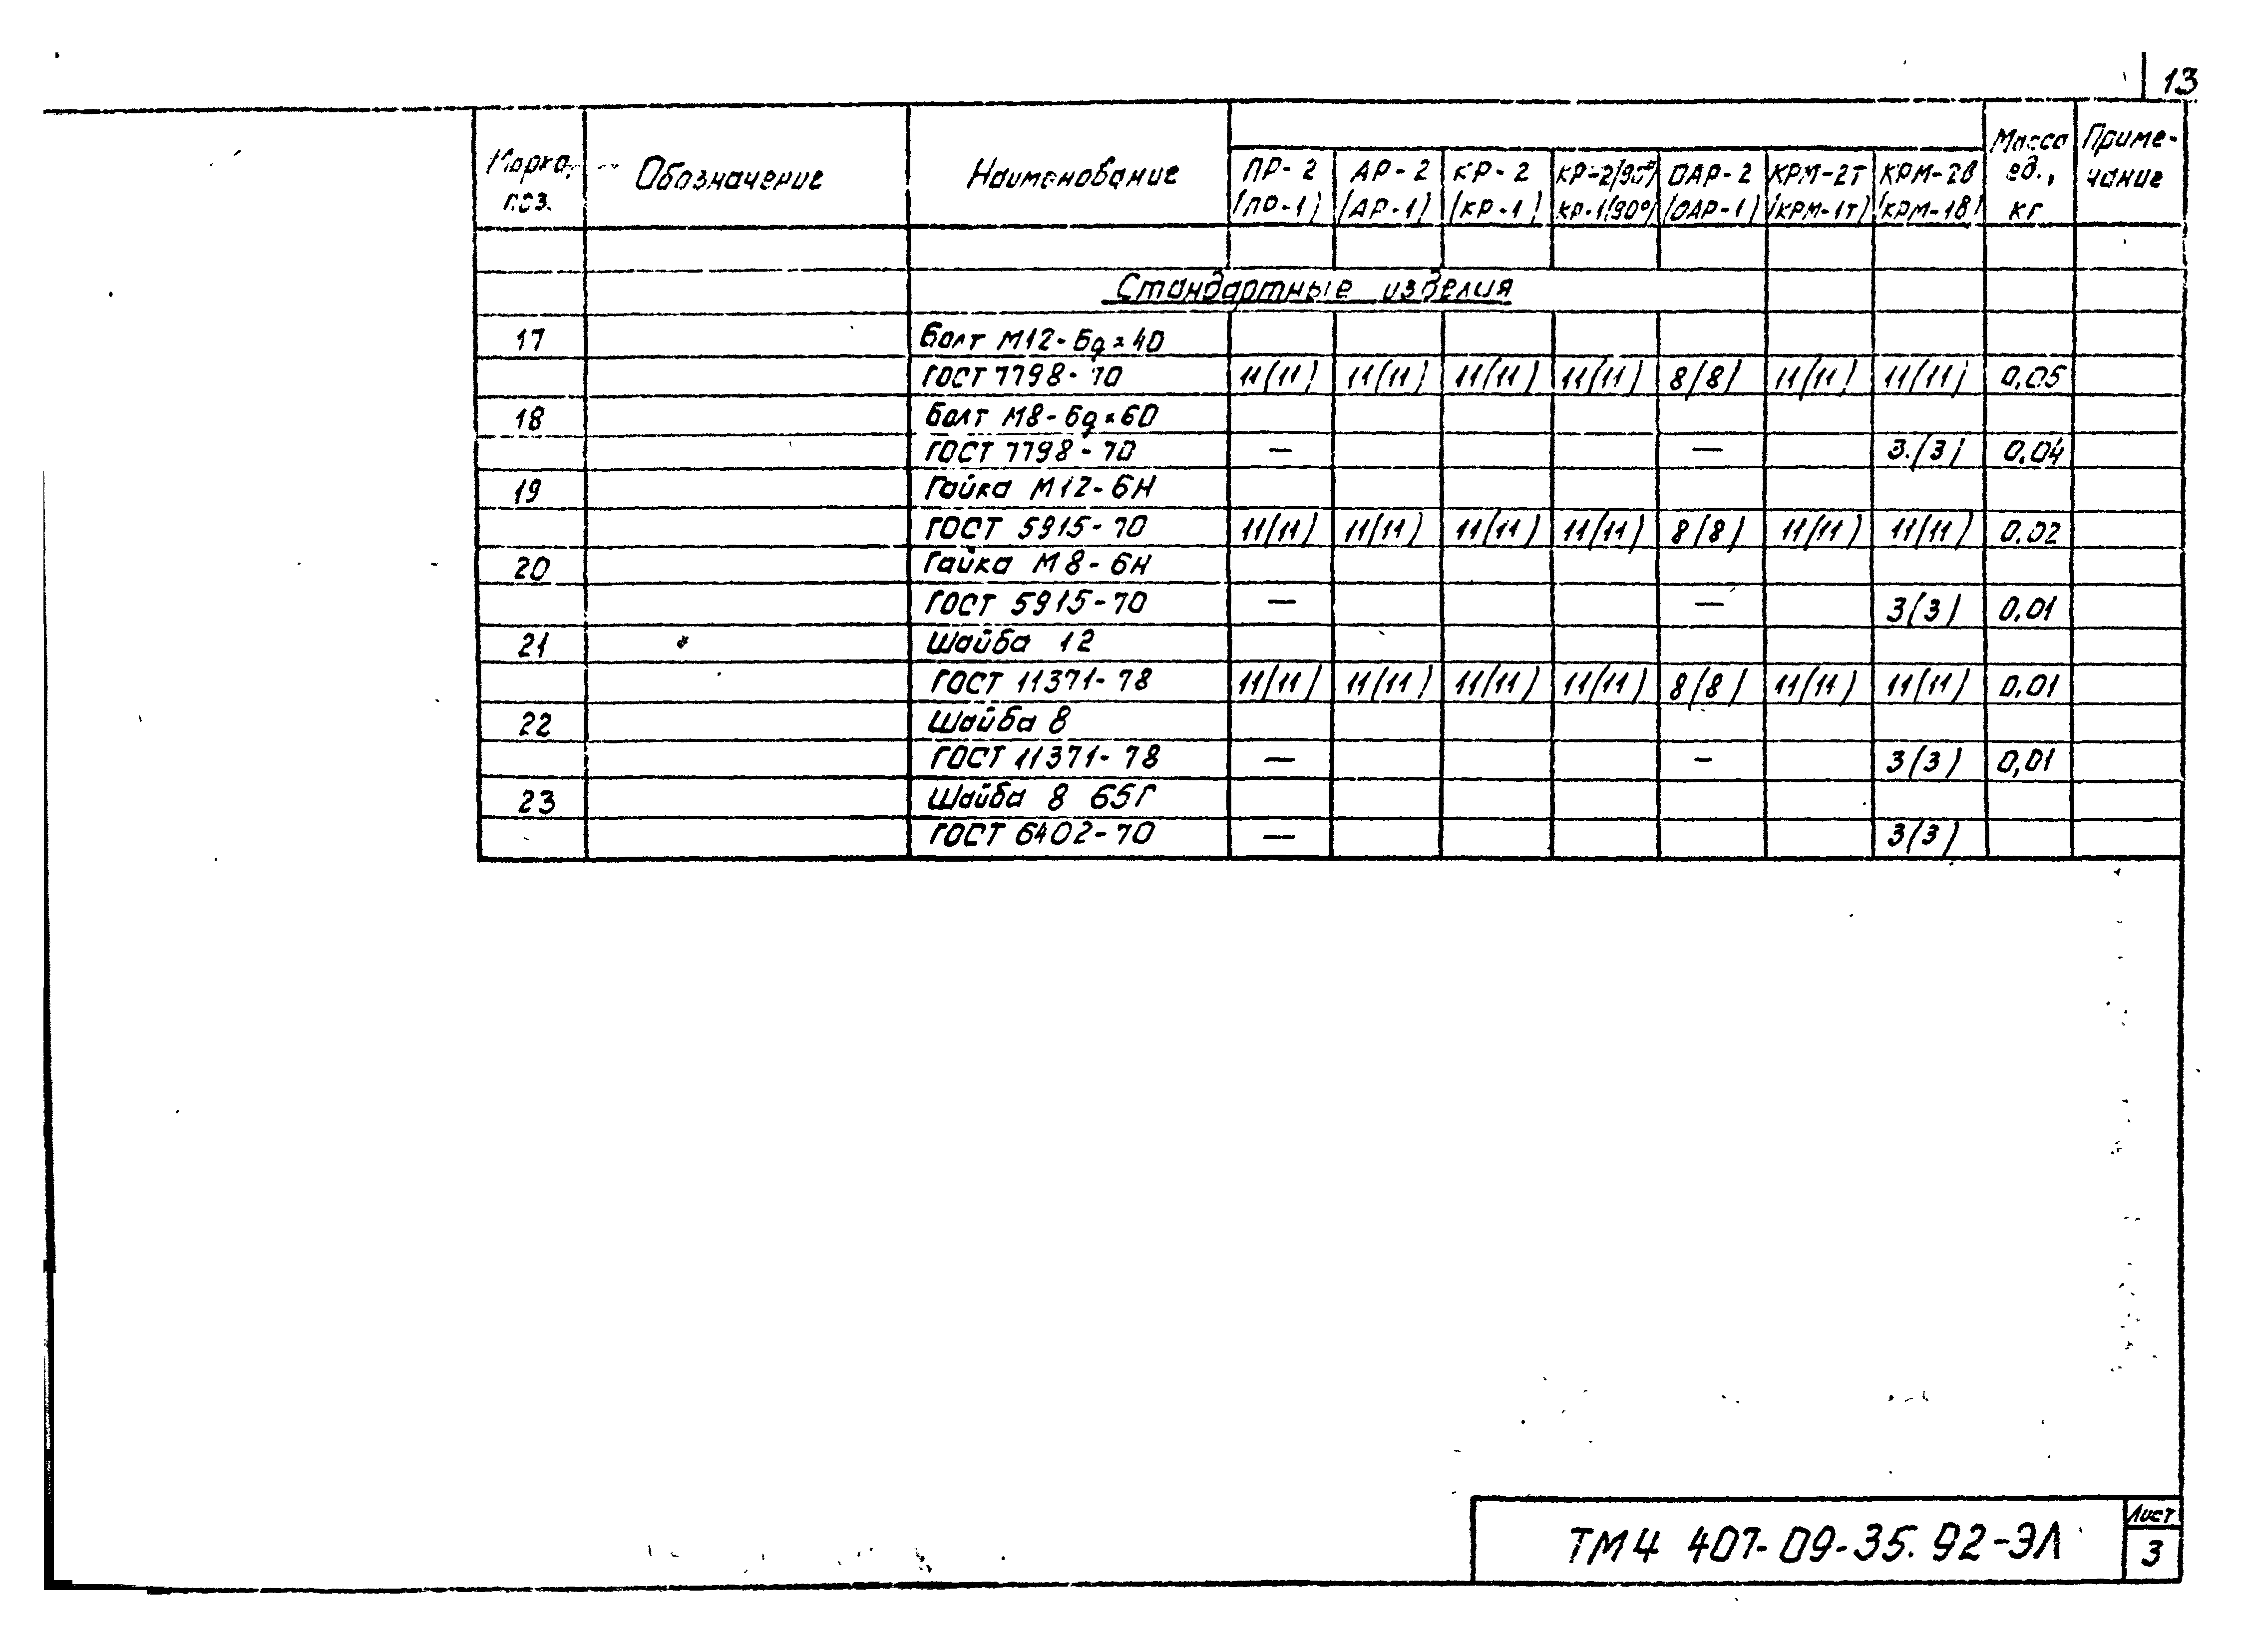 13
Марка, поз. Обозначение Наименование ПР-2 (ПР-1) АР-2 (АР-1) КР-2 (КР-1) КР-2(90°) КР-1(90°) ОАР-2 (ОАР-1) КРМ-2Т (КРМ-1Т) КРМ-2В (КРМ-1В) Масса ед., кг Приме-чание
Стандартные изделия
17 Болт М12-6g×40
ГОСТ 7798-70 11(11) 11(11) 11(11) 11(11) 8(8) 11(11) 11(11) 0,05
18 Болт М8-6g×60
ГОСТ 7798-70 — — 3(3) 0,04
19 Гайка М12-6Н
ГОСТ 5915-70 11(11) 11(11) 11(11) 11(11) 8(8) 11(11) 11(11) 0.02
20 Гайка М8-6Н
ГОСТ 5915-70 — — 3(3) 0,01
21 Шайба 12
ГОСТ 11371-78 11(11) 11(11) 11(11) 11(11) 8(8) 11(11) 11(11) 0,01
22 Шайба 8
ГОСТ 11371-78 — — 3(3) 0,01
23 Шайба 8 65Г
ГОСТ 6402-70 — 3(3)
ТМ4 407-09-35.92-ЭЛ
Лист
3